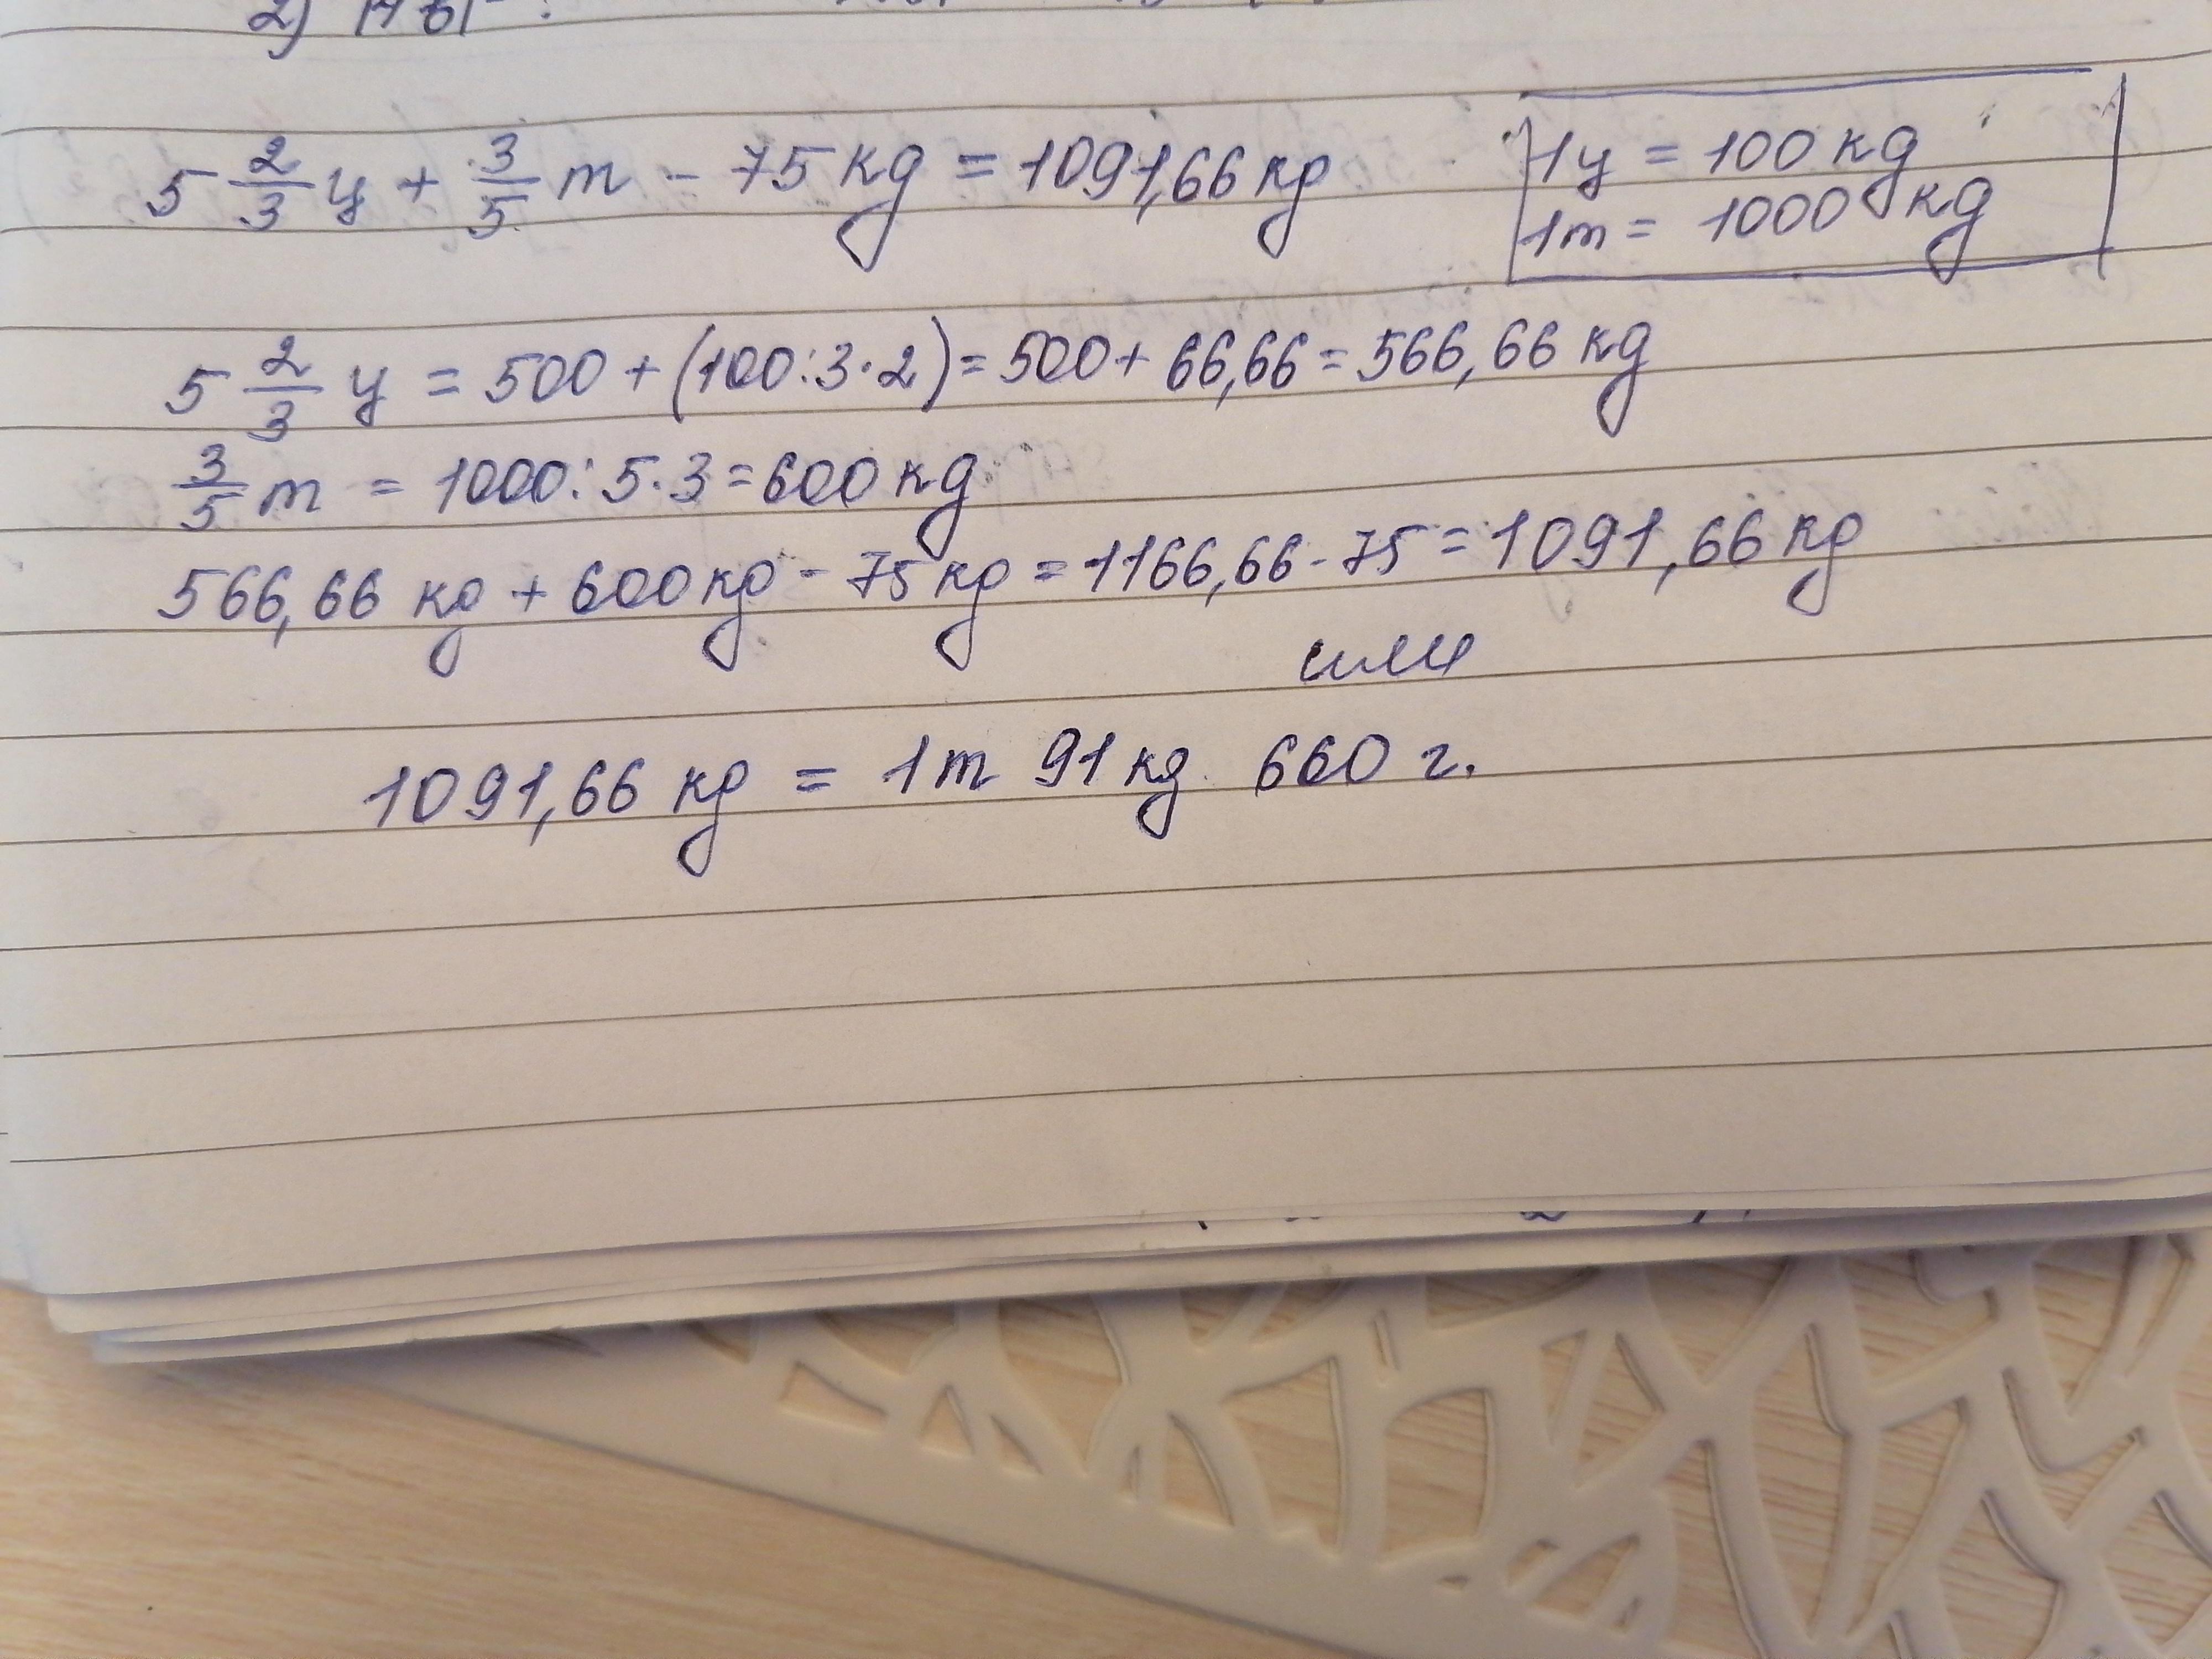 2)
5 2/3 ц + 3/5 т - 75 kg = 1091,66 kg
1ц = 100 kg
1т = 1000 kg
5 2/3 ц = 500 + (100:3·2) = 500 + 66,66 = 566,66 kg
3/5 т = 1000:5·3 = 600 kg
566,66 kg + 600 kg - 75 kg = 1166,66 - 75 = 1091,66 kg
или
1091,66 kg = 1т 91 kg 660 г.